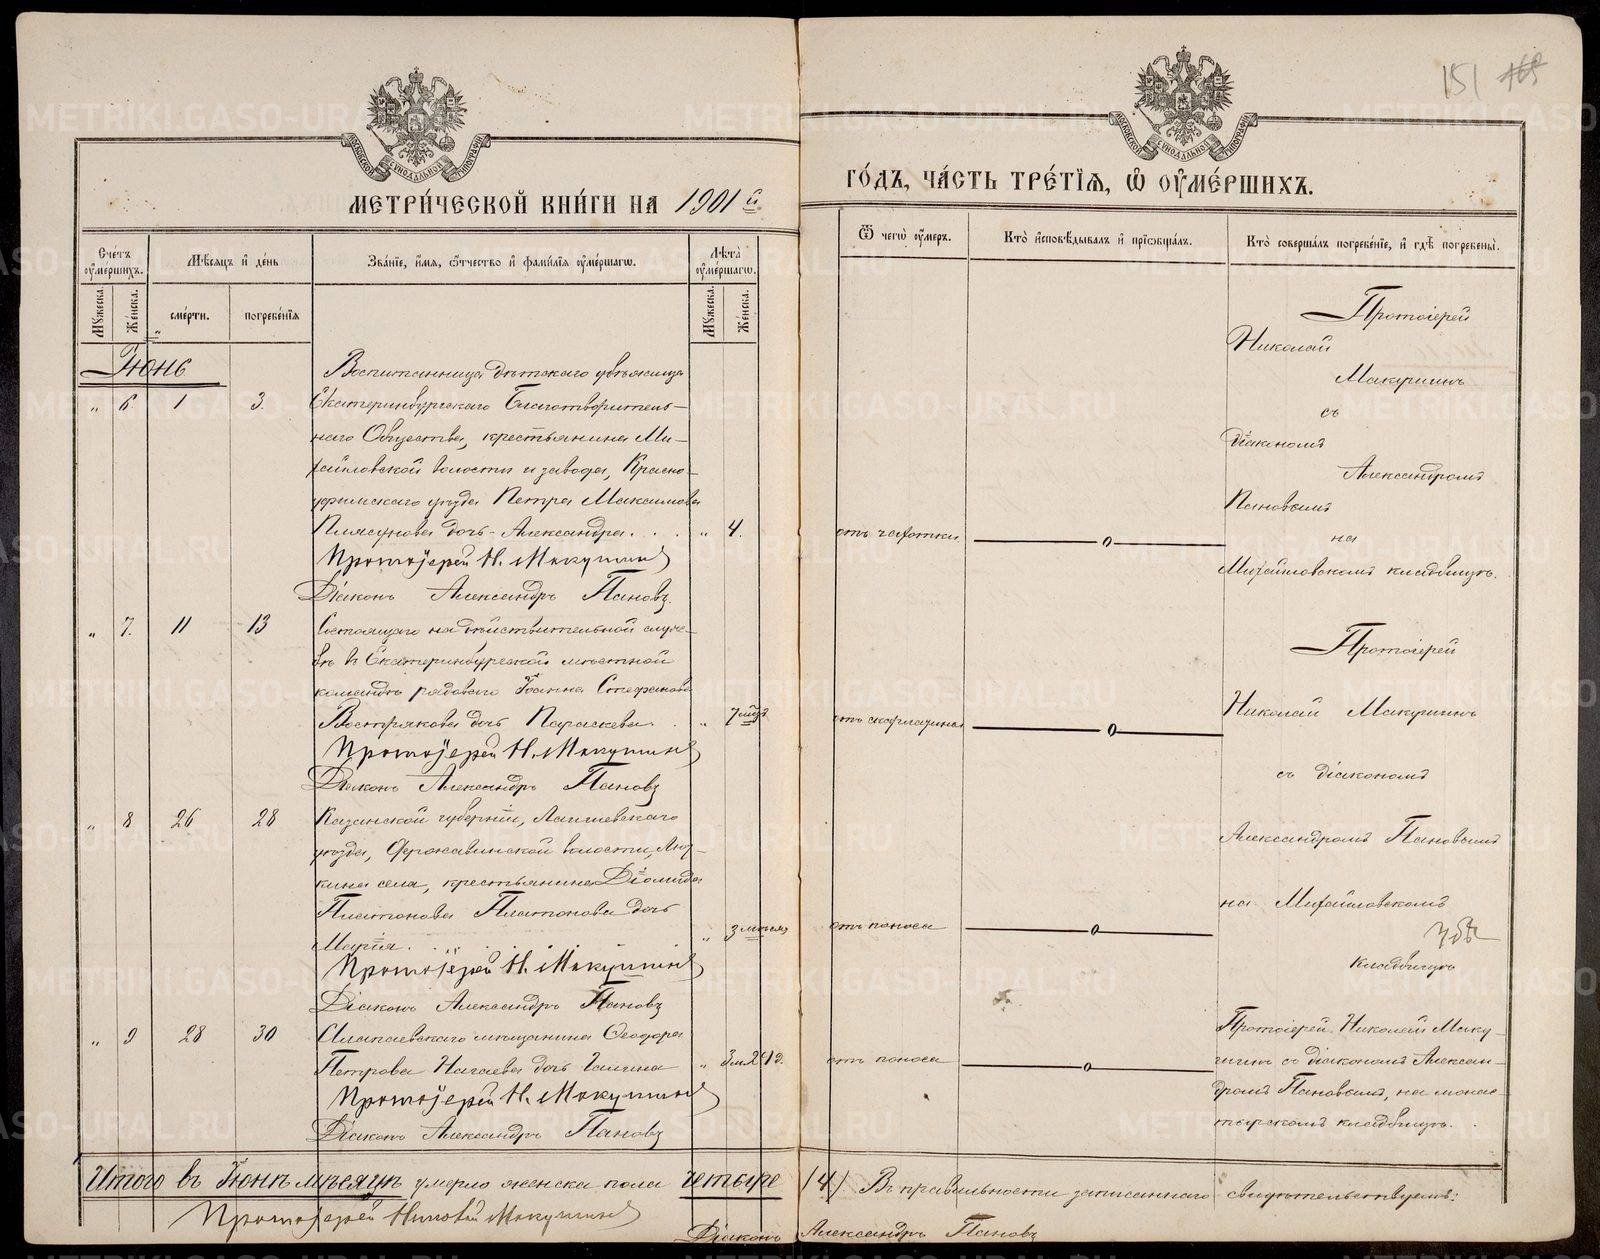 151 165
МЕТРИ́ЧЕСКОЙ КНИ́ГИ НА 1901й
ГО́ДЪ, ЧА́СТЬ ТРЕ́ТІѦ, Ѽ ОУ҆МЕ́РШИХЪ.
Сче́тъ оу҆ме́ршихъ.
Мѣ́сяцъ и҆ де́нь
Зва́нїе, и҆́мѧ, ѻ҆́тчество и҆ фами́лїѧ оу҆ме́ршагѡ.
Лѣ́та оу҆ме́ршагѡ.
Ѿ чегѡ̀ оу҆́меръ.
Кто̀ и҆сповѣ́дывалъ и҆ прїѡбща́лъ.
Кто̀ соверша́лъ погребе́нїе, и҆ гдѣ̀ погребены̀.
Мꙋ́жеска.
Же́нска.
сме́рти.
погребе́нїѧ
Мꙋ́жеска.
Же́нска.
Іюнь
„ 6 1 3.
Воспитанница дѣтскаго убѣжища
Екатеринбургскаго Благотворитель-
наго Общества, крестьянина Ми-
хайловской волости и завода, Красно-
уфимскаго уѣзда Петра Максимова
Плясунова дочь - Александра. . . „ 4.
Протоіерей Н. Макушинъ
Діаконъ Александръ Пановъ.
отъ чахотки.
Протоіерей
Николай
Макушинъ
съ
діакономъ
Александромъ
Пановымъ
на
Михайловскомъ кладбищѣ.
„ 7. 11 13
Состоящаго на дѣйствительной служ-
бѣ въ Екатеринбургской мѣстной
командѣ рядоваго Іоанна Стефанова
Вострякова дочь Параскева. . „ 7 мѣс.
Протоіерей Н. Макушинъ
Діаконъ Александръ Пановъ
отъ скарлатины
Протоіерей
Николай Макушинъ
съ діакономъ
Александромъ Пановымъ
на Михайловскомъ
кладбищѣ
„ 8 26 28
Казанской губерніи, Лаишевскаго
уѣзда, Державинской волости,
села, крестьянина Діомида
Платонова Платонова дочь
Марія. . . . . „ 3 мѣсяц.
Протоіерей Н. Макушинъ
Діаконъ Александръ Пановъ
отъ поноса
„ 9 28 30
Алапаевскаго мѣщанина Ѳеодора
Петрова Нагаева дочь Галина „ 3 м. 24 д.
Протоіерей Н. Макушинъ
Діаконъ Александръ Пановъ
отъ поноса
Протоіерей Николай Маку-
шинъ съ діакономъ Алексан-
дромъ Пановымъ, на монас-
тырскомъ кладбищѣ.
Итого въ Іюнѣ мѣсяцѣ умерло женска пола четыре (4). Въ правильности записаннаго свидѣтельствуемъ:
Протоіерей Николай Макушинъ
Діаконъ Александръ Пановъ
METRIKI.GASO-URAL.RU